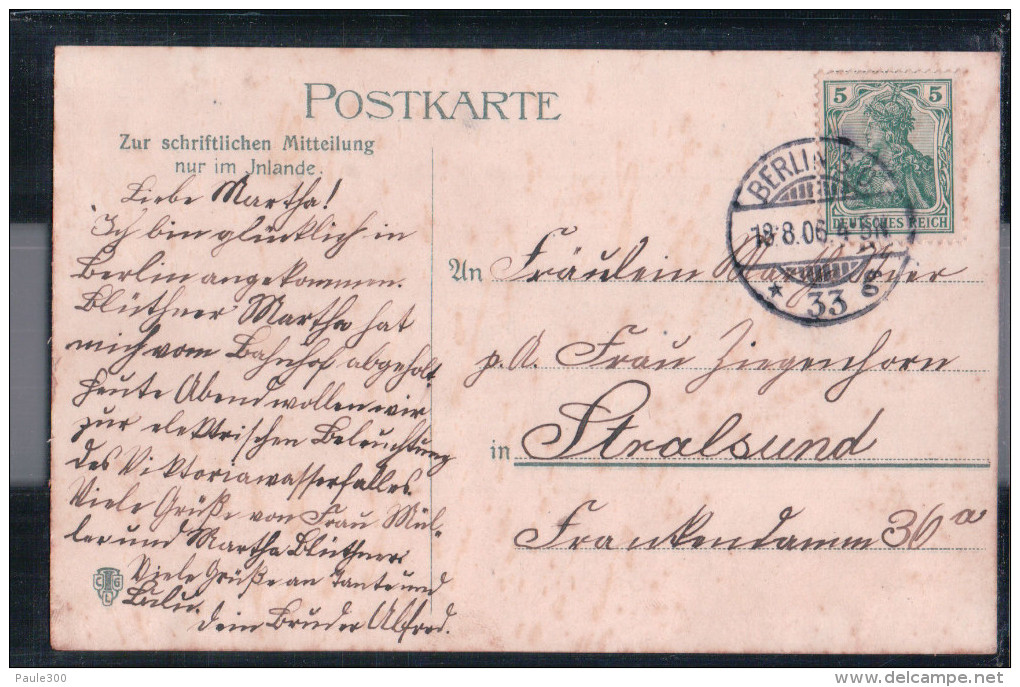 POSTKARTE
Zur schriftlichen Mitteilung
nur im Jnlande.
5 5
DEUTSCHES REICH
BERLIN S.O.
18.8.06. 4-5N
* 33
Liebe Martha!
Ich bin glücklich in
Berlin angekommen.
Blüthner Martha hat
mich vom Bahnhof abgeholt
Heute Abend wollen wir
zur elektrischen Beleuchtung
des Viktoriawasserfalles.
Viele Grüße von Frau Mül-
ler und Martha Blüthner.
Viele Grüße an Tante und
Lulu.
Dein Bruder Alfred.
An Fräulein
p. A. Frau Ziegenhorn
in Stralsund
Frankendamm 36a
C G L
Paule300
www.delcampe.net